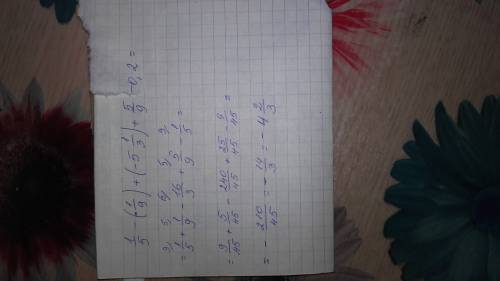 1/5 - (-1/9) + (-5 1/3) + 5/9 - 0,2 =
= 1/5 + 1/9 - 16/3 + 5/9 - 1/5 =
= 9/45 + 5/45 - 240/45 + 25/45 - 9/45 =
= - 210/45 = - 14/3 = - 4 2/3